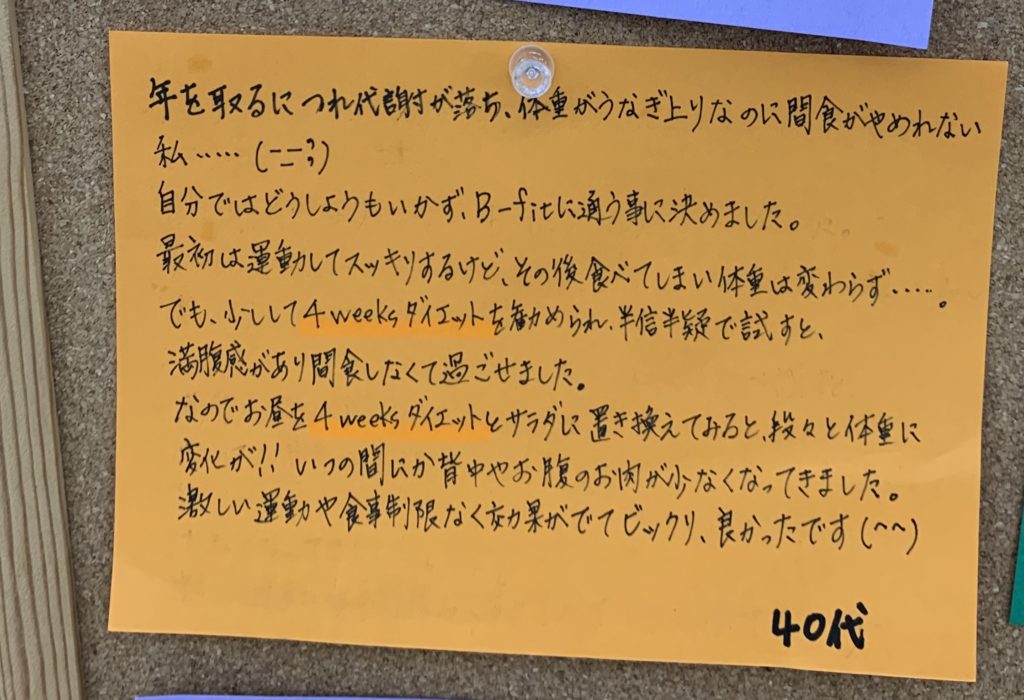 年を取るにつれ代謝が落ち、体重がうなぎ上りなのに間食がやめれない
私‥‥‥(ーー;)
自分ではどうしようもいかず、B-fitに通う事に決めました。
最初は運動してスッキリするけど、その後食べてしまい体重は変わらず‥‥。
でも、少しして4weeksダイエットを勧められ、半信半疑で試すと、
満腹感があり間食しなくて過ごせました。
なのでお昼を4weeksダイエットとサラダに置き換えてみると、段々と体重に
変化が!! いつの間にか背中やお腹のお肉が少なくなってきました。
激しい運動や食事制限なく効果がでてビックリ、良かったです(^^)
40代